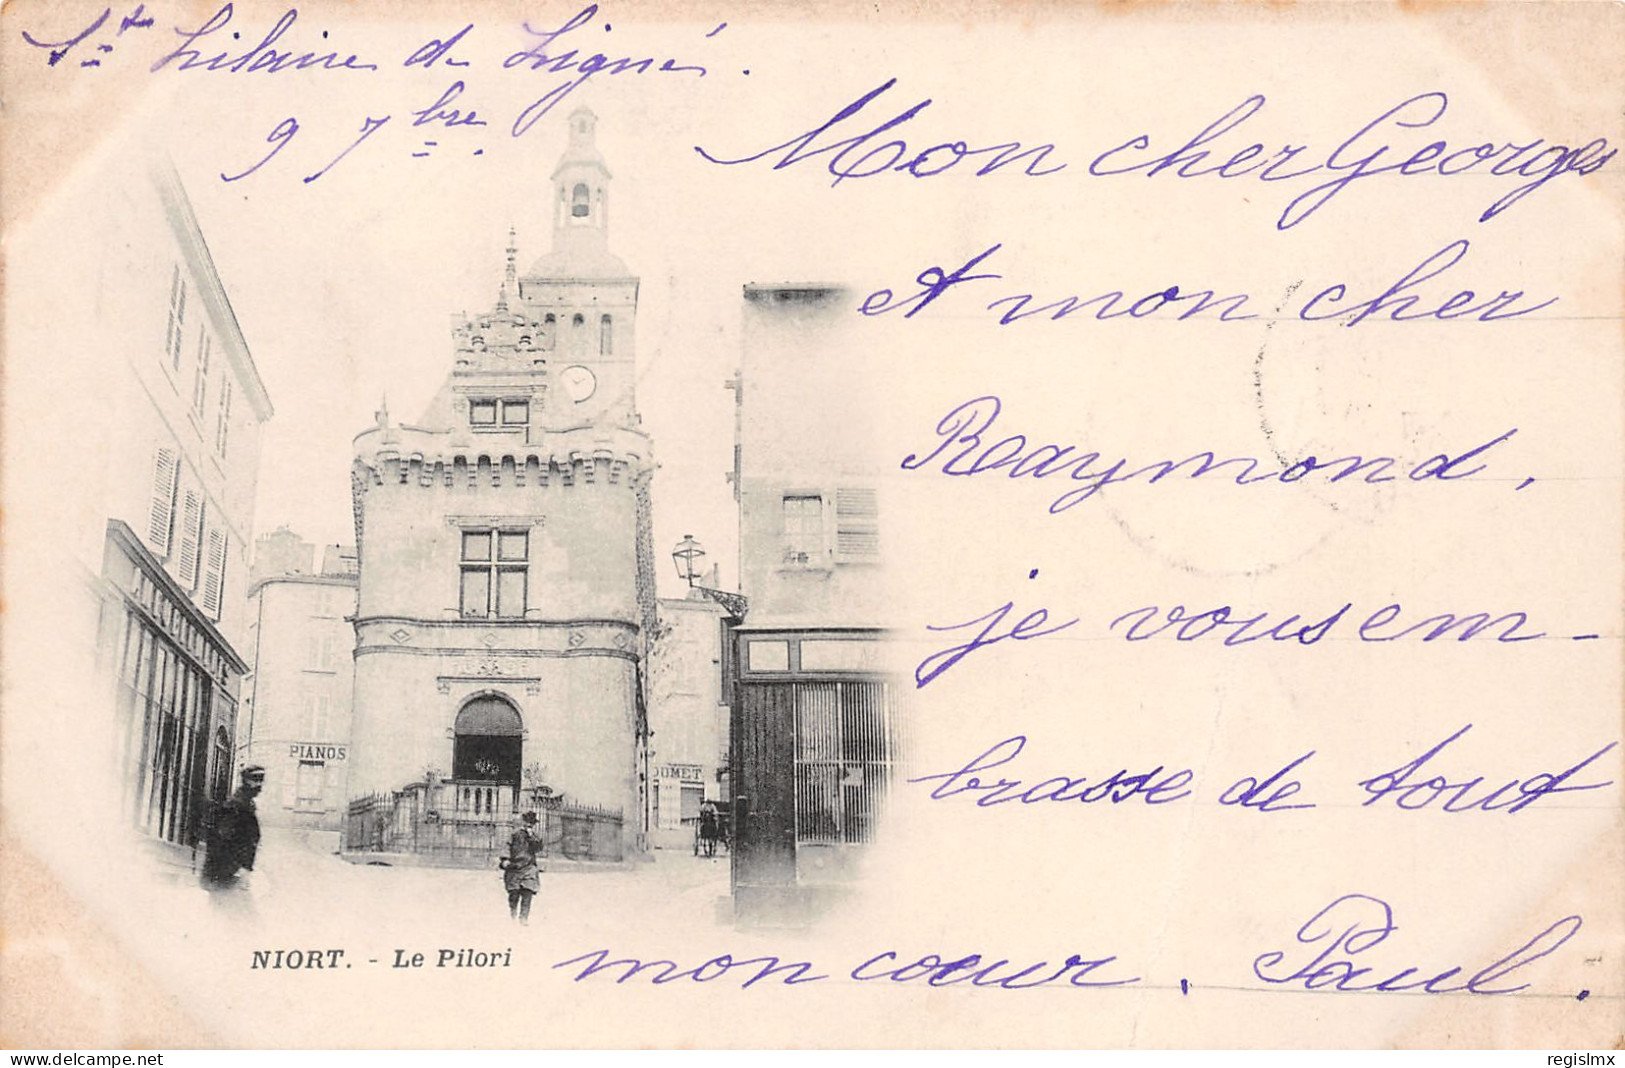 St hilaire de Ligné.
9 7bre.
Mon cher Georges
et mon cher
Raymond,
je vous em-
brasse de tout
mon cœur. Paul.
PIANOS
OUMET
NIORT. - Le Pilori
delcampe.net
regislmx